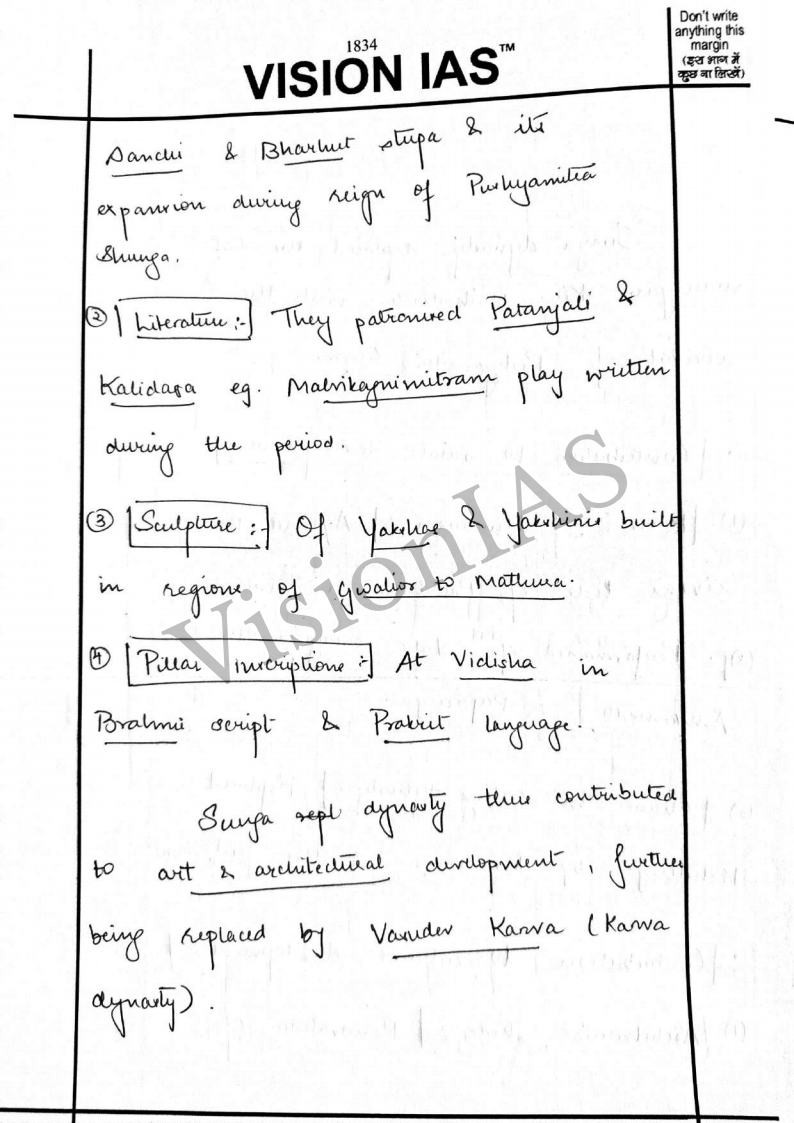 1834
VISION IAS™
Don't write
anything this
margin
(इस भाग में
कुछ ना लिखें)
Sanchi & Bharhut stupa & its
expansion during reign of Pushyamitra
Shunga.
② Literature :- They patronised Patanjali &
Kalidasa eg. Malvikagnimitram play written
during the period.
③ Sculpture :- Of Yakshas & Yakshinis built
in regions of Gwalior to Mathura.
④ Pillar inscriptions :- At Vidisha in
Brahmi script & Prakrit language.
Sunga dynasty thus contributed
to art & architectural development, further
being replaced by Vasudev Kanva (Kanva
dynasty).
VisionIAS